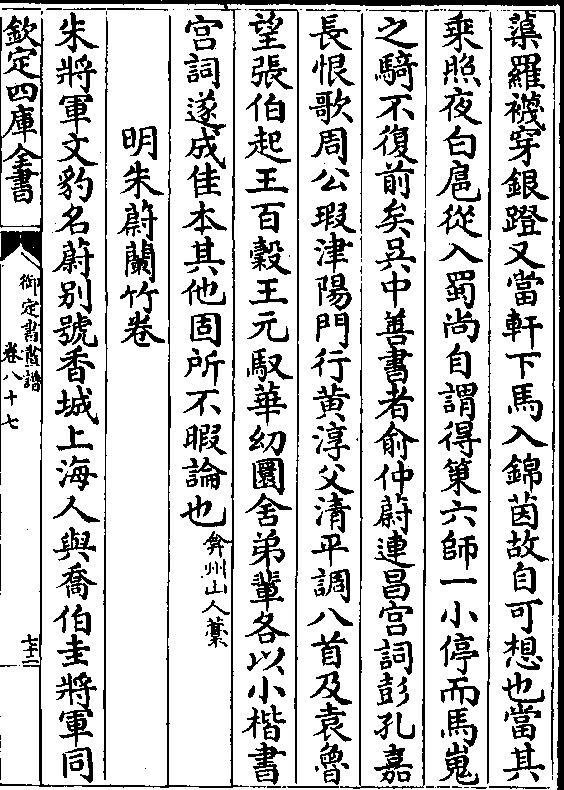 蕖羅襪穿銀蹬又當軒下馬入錦茵故自可想也當其
乘照夜白扈從入蜀尚自謂得䇿六師一小停而馬嵬
之騎不復前矣吳中善書者俞仲蔚連昌宫詞彭孔嘉
長恨歌周公瑕津陽門行黄淳父清平調八首及袁魯
望張伯起王百穀王元馭華幼圜舍弟輩各以小楷書
宫詞遂成佳本其他固所不暇論也弇州山人藁
明朱蔚蘭竹卷
朱將軍文豹名蔚别號香城上海人與喬伯圭將軍同
欽定四庫全書
御定書畫譜
卷八十七
七十二